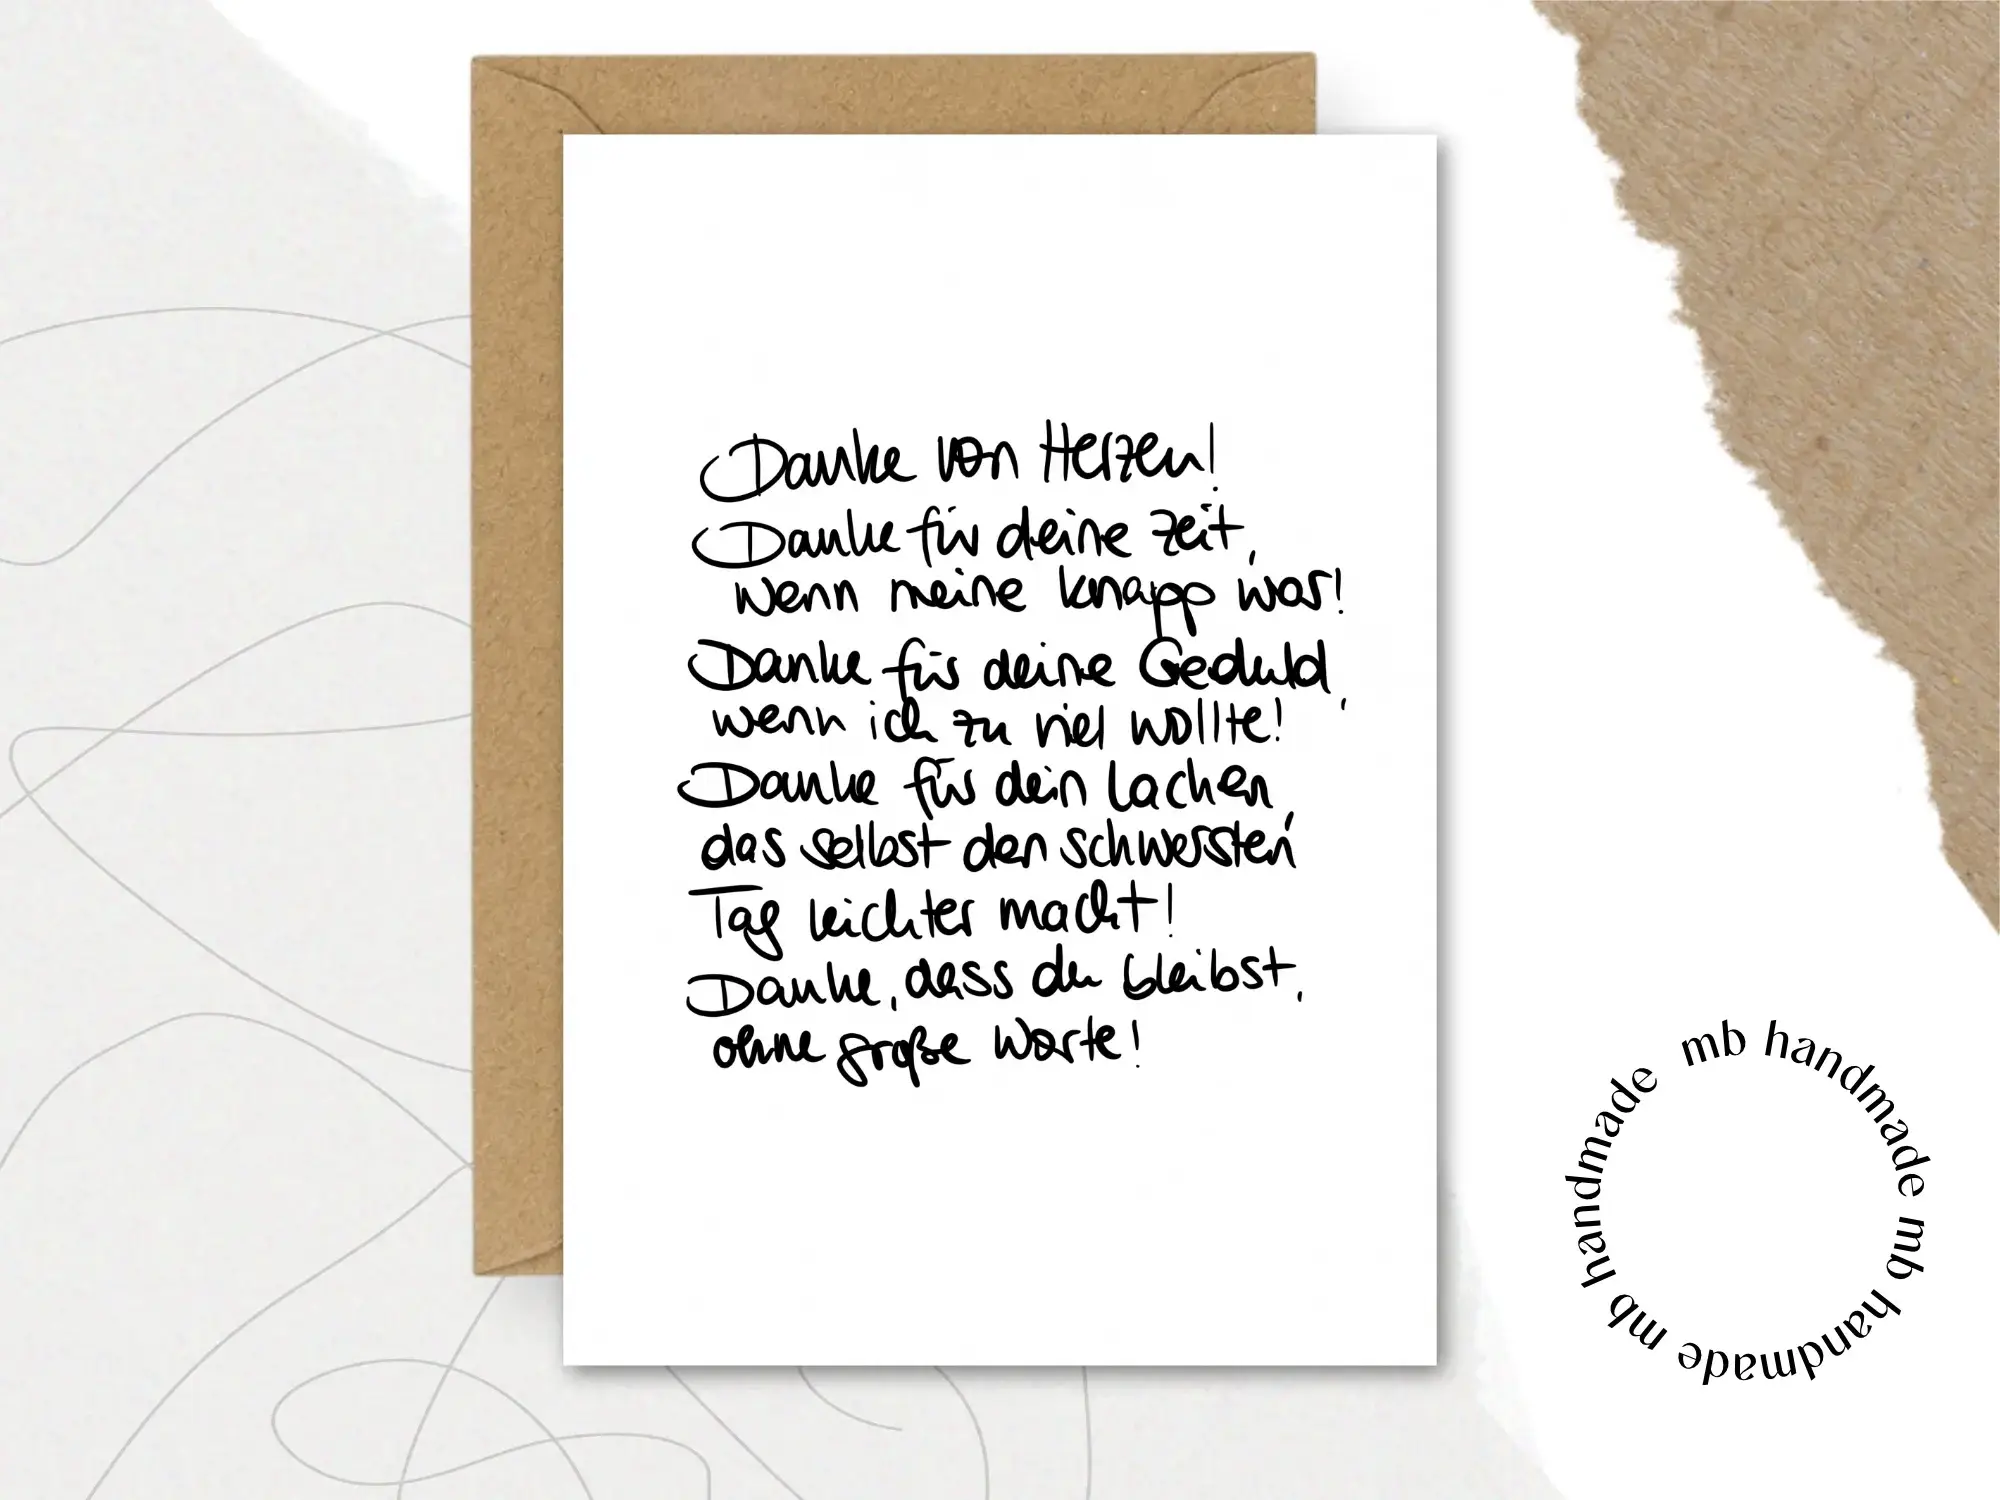 Danke von Herzen!
Danke für deine Zeit,
wenn meine knapp war!
Danke für deine Geduld,
wenn ich zu viel wollte!
Danke für dein Lachen,
das selbst den schwersten
Tag leichter macht!
Danke, dass du bleibst,
ohne große Worte!
mb handmade mb handmade mb handmade